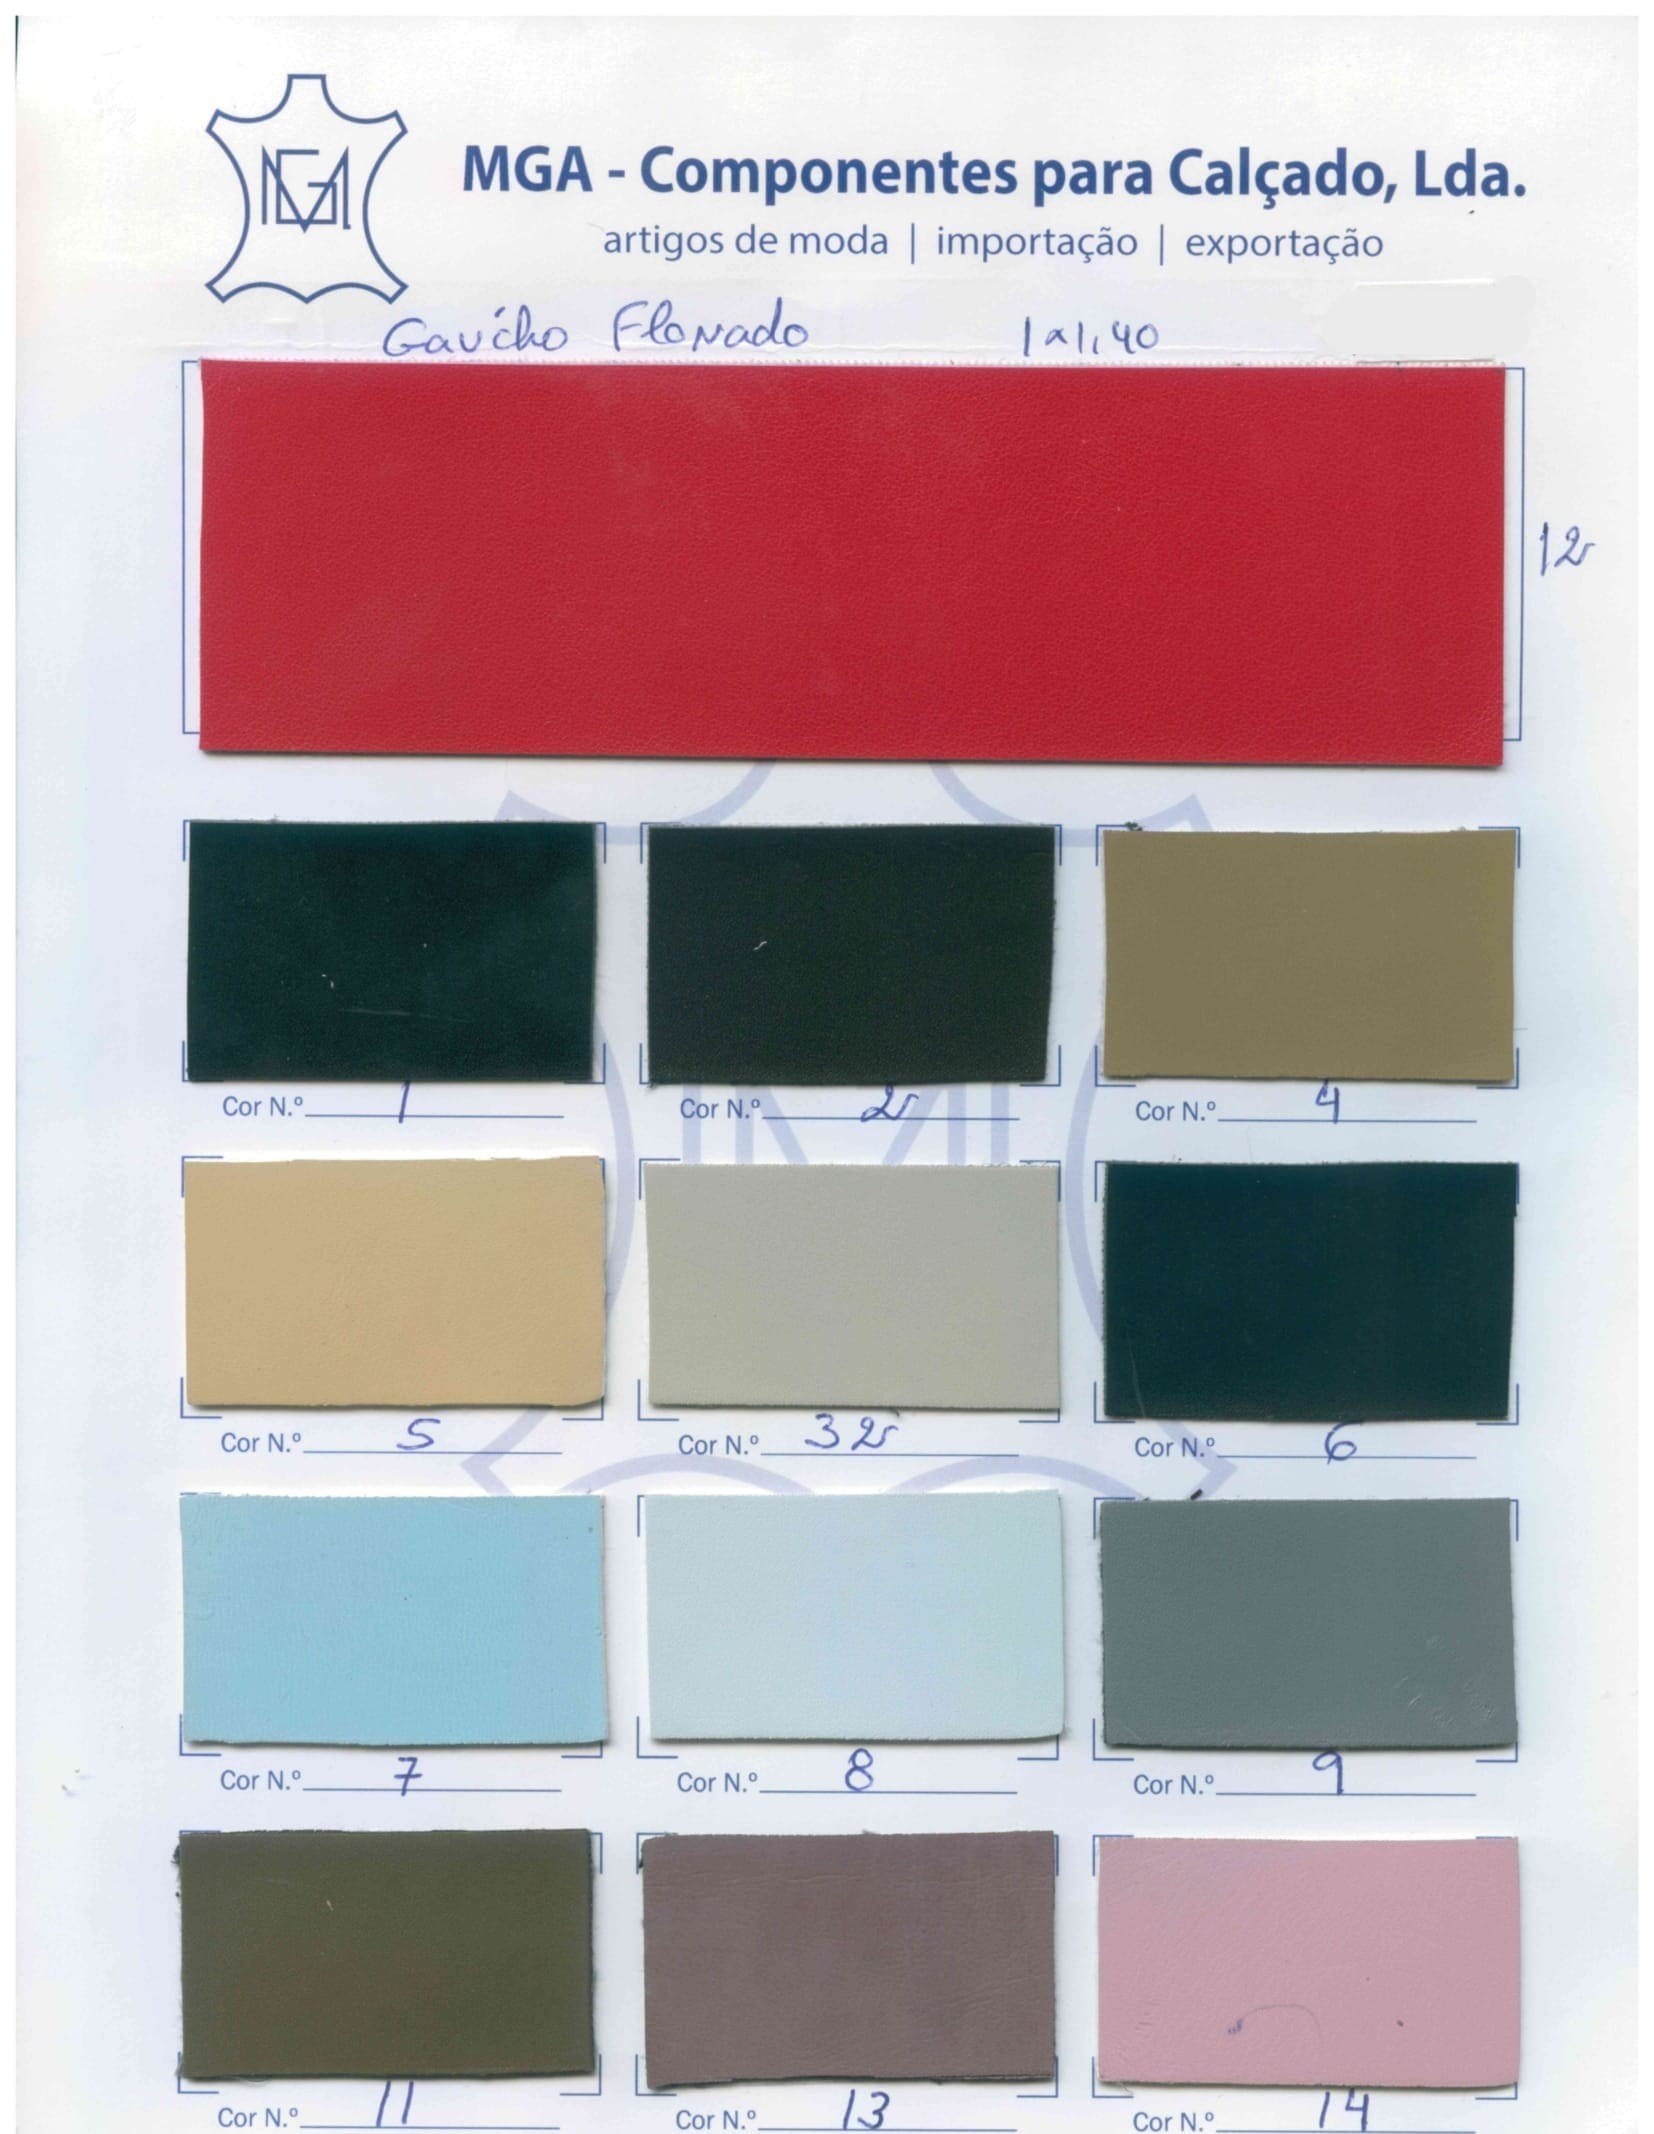 MGA - Componentes para Calçado, Lda.
artigos de moda | importação | exportação
Gaúcho Flonado 1x1,40
12
Cor N.º 1 Cor N.º 2 Cor N.º 4
Cor N.º 5 Cor N.º 32 Cor N.º 6
Cor N.º 7 Cor N.º 8 Cor N.º 9
Cor N.º 11 Cor N.º 13 Cor N.º 14